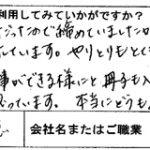 利用してみていかがですか？
だったので諦めていましたが
ています。やりとりもとても
事ができる様にと冊子も入
っています。本当にどうも
会社名またはご職業